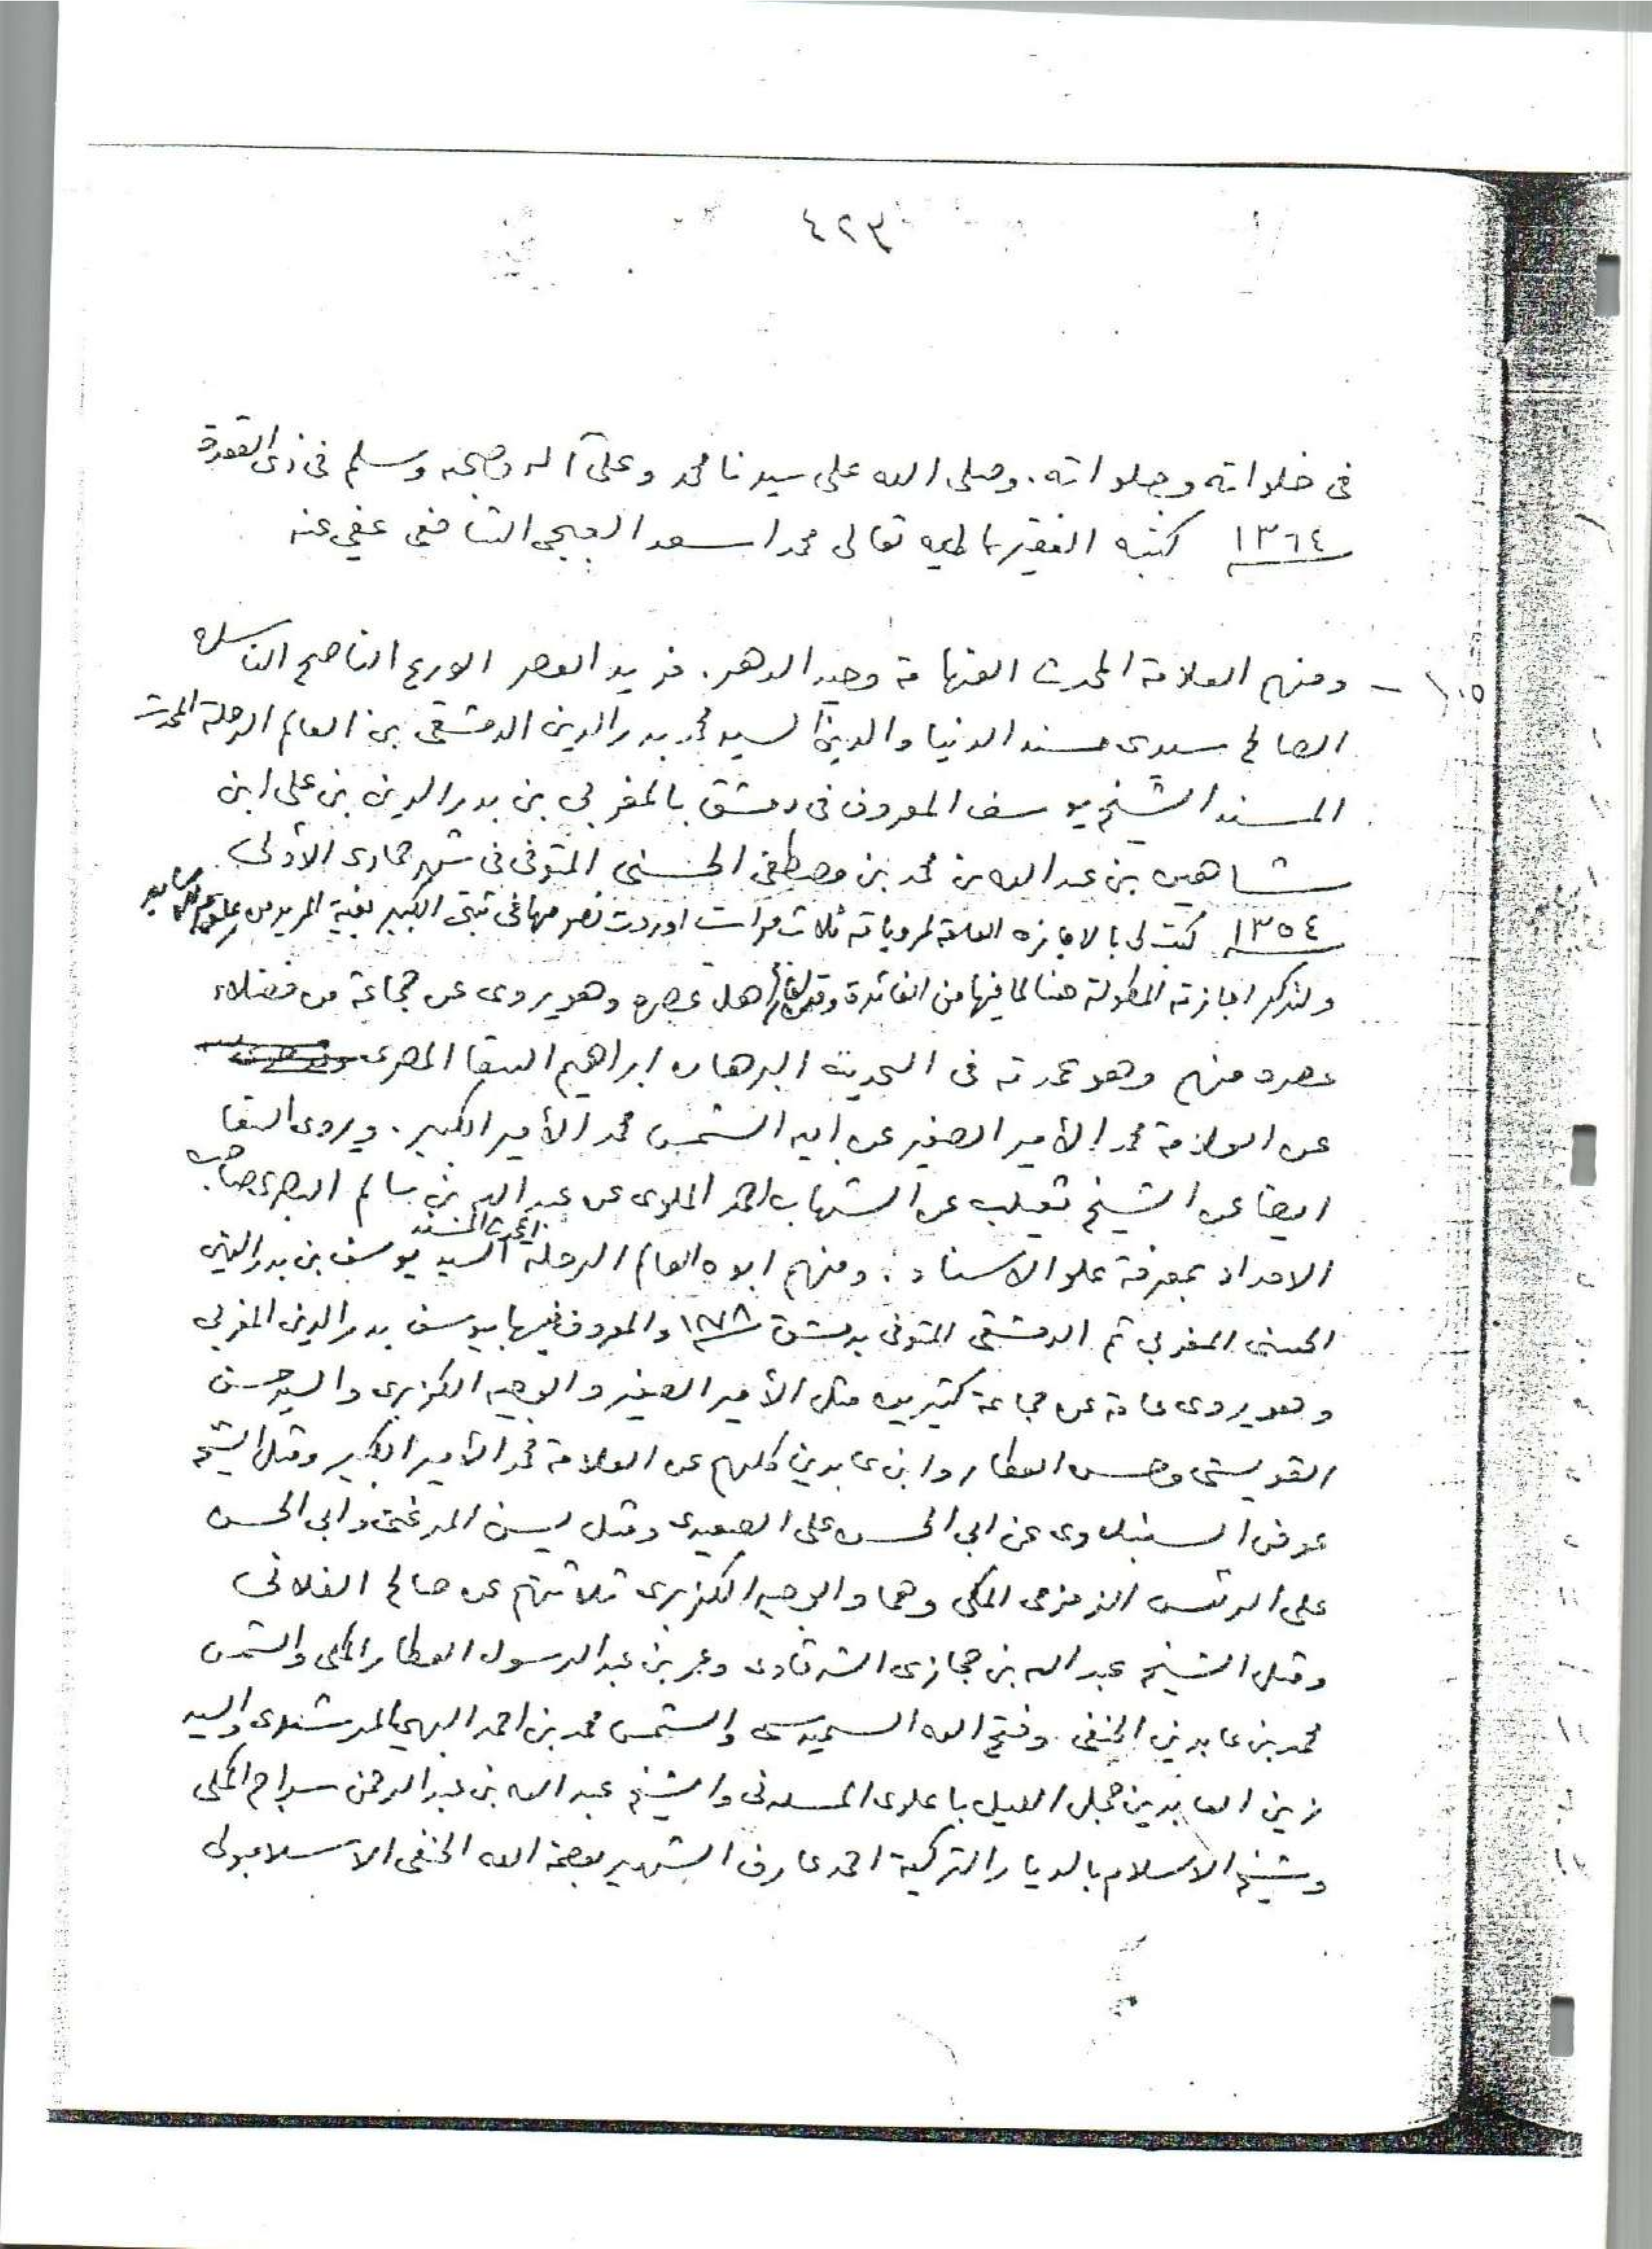 ٤٢٣
فى خلواته وجلواته. وصلى الله على سيدنا محمد وعلى آله وصحبه وسلم فى ذى القعدة
١٣٦٤ كتبه الفقير اليه تعالى محمد اسعد العبجى الشافعى عفى عنه
١٠٥ - ومنهم العلامة المحدث الفهامة وحيد الدهر. فريد العصر الورع الناصح الناسك
الصالح سيدى مسند الدنيا والدين السيد محمد بدر الدين الدمشقى بن العالم الرحلة المحدث
المسند الشيخ يوسف المعروف فى دمشق بالمغربي بن بدر الدين بن على ابن
شاهين بن عبد الله بن محمد بن مصطفى الحسنى المتوفى فى شهر جمادى الأولى
١٣٥٤ كتب لى بالاجازه العامة لمروياته ثلاث مرات اوردت نصوصها فى ثبتى الكبير بغية المريد من علوم الاسانيد
ولنذكر اجازته المطولة هنا لما فيها من الفائدة اهل عصره وهو يروى عن جماعة من فضلاء
عصره منهم وهو عمدته فى التحديث البرهان ابراهيم السقا المصرى
عن العلامة محمد الأمير الصغير عن ابيه الشمس محمد الأمير الكبير. ويروى السقا
ايضا عن الشيخ ثعيلب عن الشهاب احمد الملوى عن عبد الله بن سالم البصرى صاحب
الامداد بمعرفة علو الاسناد: ومنهم ابوه العالم الرحلة المحدث المسند السيد يوسف بن بدر الدين
الحسنى المغربي ثم الدمشقى المتوفى بدمشق ١٢٧٨ والمعروف فيها بيوسف بدر الدين المغربى
وهو يروى عامة عن جماعة كثيرين مثل الأمير الصغير والوجيه الكزبرى والسيد حسن
القويسنى وحسن العطار وابن عابدين كلهم عن العلامة محمد الأمير الكبير ومثل الشيخ
عوض السنبلاوى عن ابى الحسن على الصعيدى ومثل يسن المرغنى وابى الحسن
على الرئيس الزمزمى المكى وهما والوجيه الكزبرى ثلاثتهم عن صالح الفلانى
ومثل الشيخ عبد الله بن حجازى الشرقاوى وعمر بن عبد الرسول العطار المكى والشمس
محمد بن عابدين الحنفى وفتح الله السميديسى والشمس محمد بن احمد البهى المرشدى والسيد
زين العابدين جمل الليل باعلوى المدنى والشيخ عبد الله بن عبد الرحمن سراج المكى
وشيخ الاسلام بالديار التركية احمد عارف الشهير بعصمة الله الحنفى الاسلامبولى